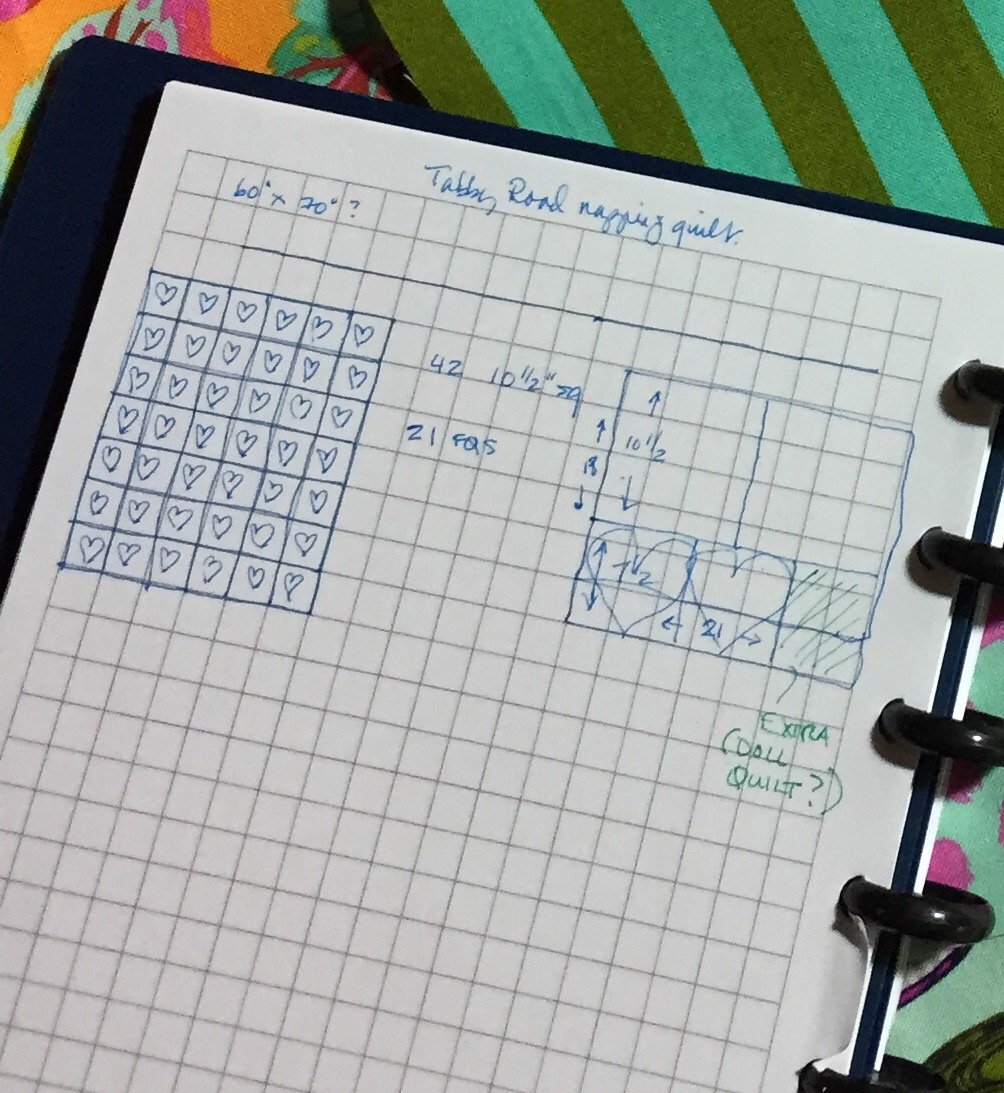 Tabby Road napping quilt.
60" x 70" ?
42 10 1/2" sq
21 FQs
10 1/2
18
7 1/2
21
EXTRA
(DOLL
QUILT?)